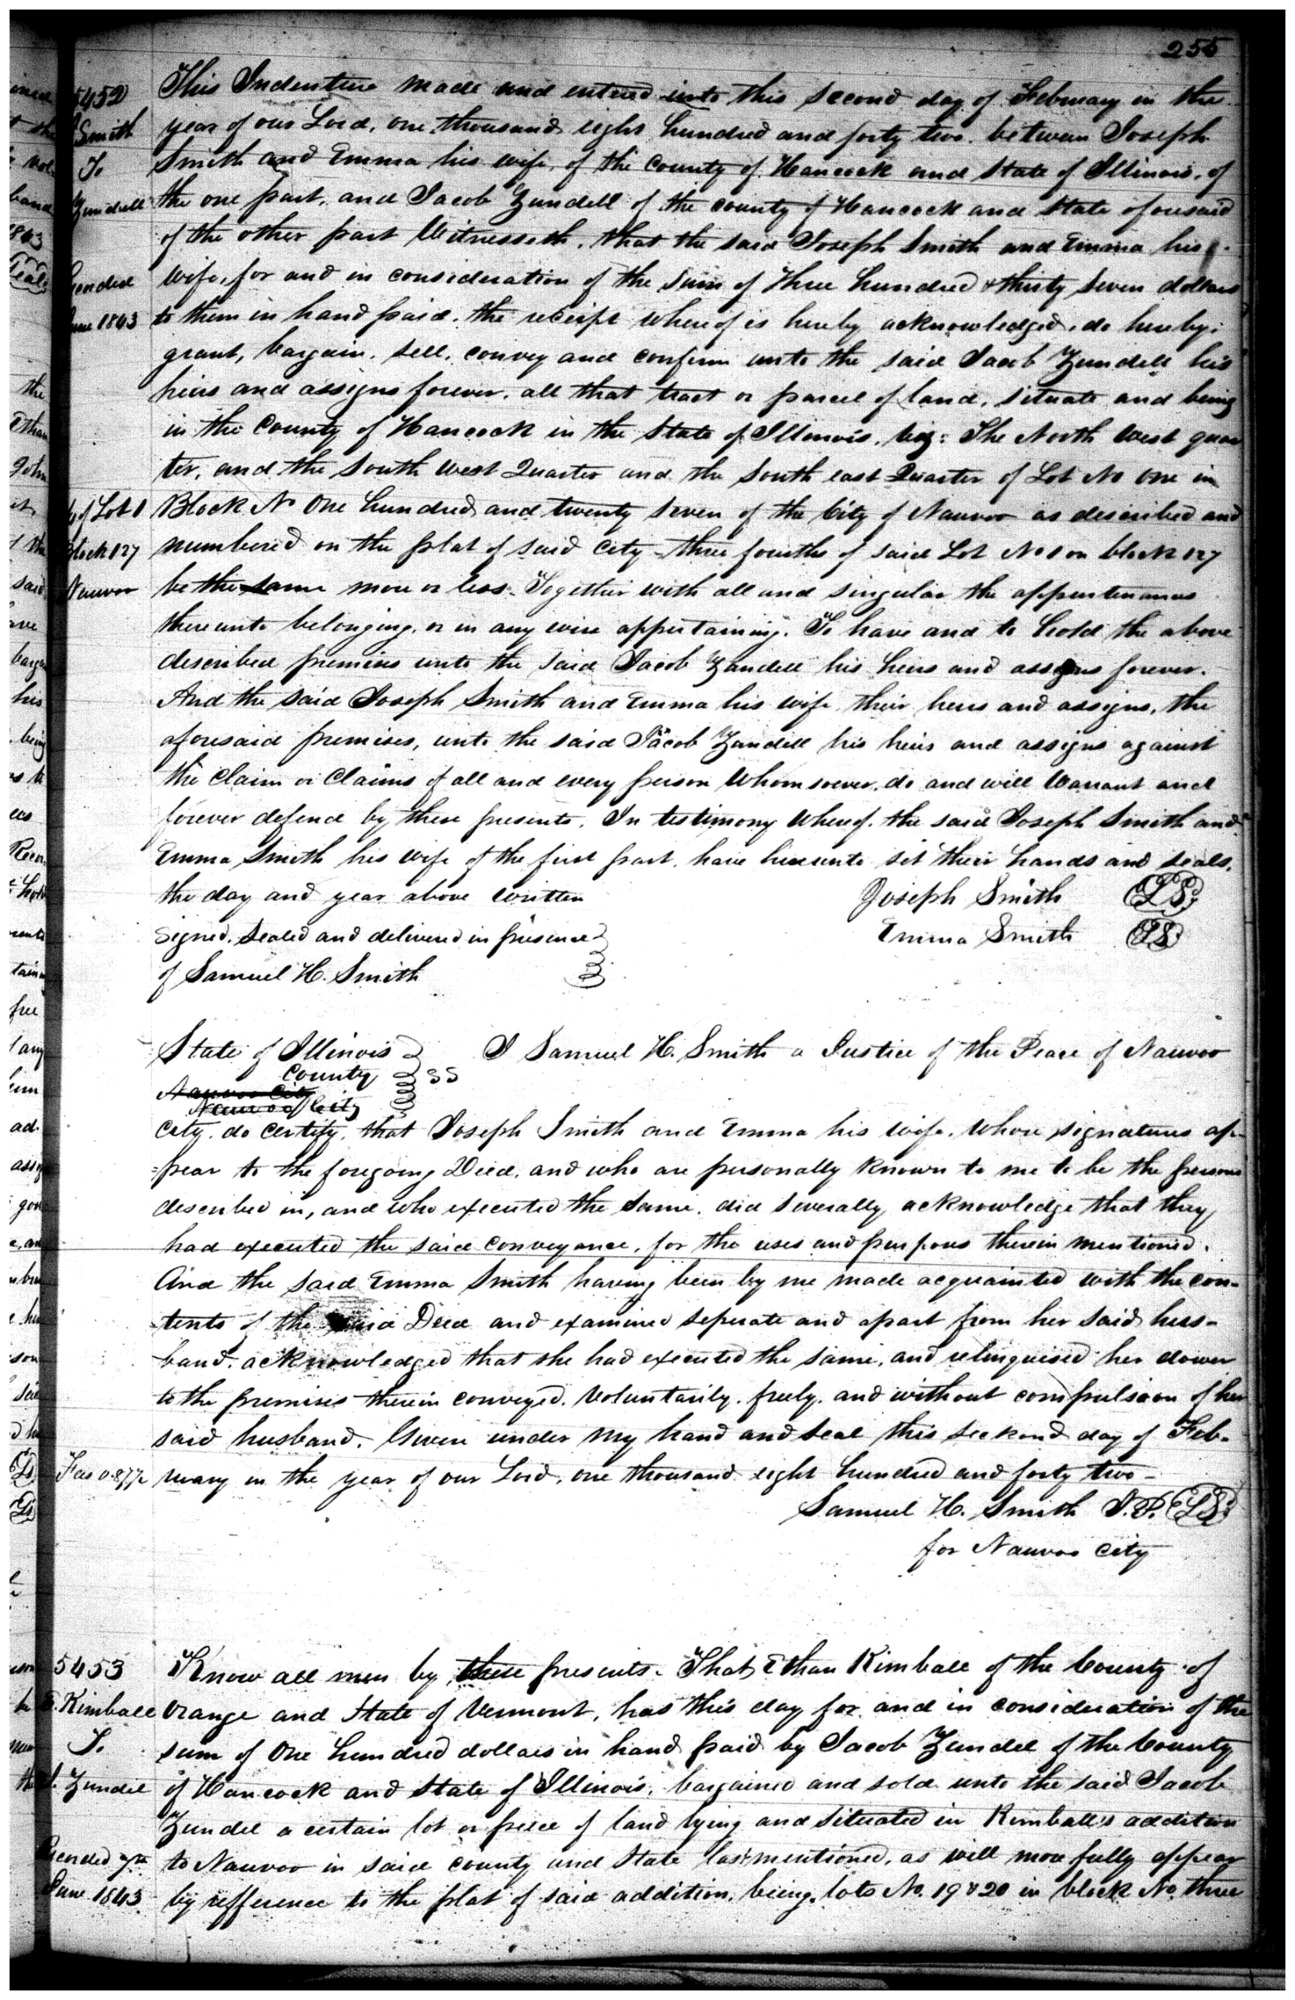 255
5452
Smith
To
Zundell
June 1843
This Indenture made and entered into this second day of February in the
year of our Lord, one thousand eight hundred and forty two. between Joseph
Smith and Emma his wife, of the county of Hancock and State of Illinois, of
the one part, and Jacob Zundell of the county of Hancock and State aforesaid
of the other part Witnesseth, that the said Joseph Smith and Emma his
wife, for and in consideration of the sum of three hundred & thirty seven dollars
to them in hand paid, the receipt whereof is hereby acknowledged, do hereby
grant, bargain, sell, convey and confirm unto the said Jacob Zundell his
heirs and assigns forever, all that tract or parcel of land, situate and being
in the County of Hancock in the State of Illinois, viz: The North West quar
ter, and the South West Quarter and the South east Quarter of Lot No one in
of Lot 1
Block 127
Nauvoo
Block No One hundred and twenty seven of the City of Nauvoo as described and
numbered on the plat of said City three fourths of said Lot No 1 on block 127
be the same more or less. Together with all and singular the appurtenances
thereunto belonging, or in any wise appertaining. To have and to hold the above
described premises unto the said Jacob Zundell his heirs and assigns forever.
And the said Joseph Smith and Emma his wife, their heirs and assigns, the
aforesaid premises, unto the said Jacob Zundell his heirs and assigns against
the claim or Claims of all and every person whomsoever, do and will warrant and
forever defend by these presents. In testimony whereof, the said Joseph Smith and
Emma Smith his wife of the first part, have hereunto set their hands and seals,
the day and year above written
Joseph Smith LS
Signed, Sealed and delivered in presence
Emma Smith LS
of Samuel H. Smith
State of Illinois
County
Nauvoo City
Nauvoo City
SS
I Samuel H. Smith a Justice of the Peace of Nauvoo
City, do certify, that Joseph Smith and Emma his wife, whose signatures ap-
=pear to the foregoing Deed, and who are personally known to me to be the persons
described in, and who executed the same, did severally acknowledge that they
had executed the said conveyance, for the uses and purposes therein mentioned.
And the said Emma Smith having been by me made acquainted with the con-
tents of the said Deed and examined seperate and apart from her said hus-
band, acknowledged that she had executed the same, and relinquised her dower
to the premises therein conveyed, Voluntarily, freely, and without compulsion of her
said husband. Given under my hand and seal this seckond day of Feb-
ruary in the year of our Lord, one thousand eight hundred and forty two-
Samuel H. Smith J.P. LS
for Nauvoo City
5453
E. Kimball
To
J. Zundel
June 1843
Know all men by these presents. That Ethan Kimball of the County of
Orange and State of Vermont, has this day for and in consideration of the
sum of One hundred dollars in hand paid by Jacob Zundel of the County
of Hancock and State of Illinois, bargained and sold unto the said Jacob
Zundel a certain lot or piece of land lying and situated in Kimball's addition
to Nauvoo in said county and State last mentioned, as will more fully appear
by refference to the plat of said addition, being, lots No. 19 & 20 in block No. three